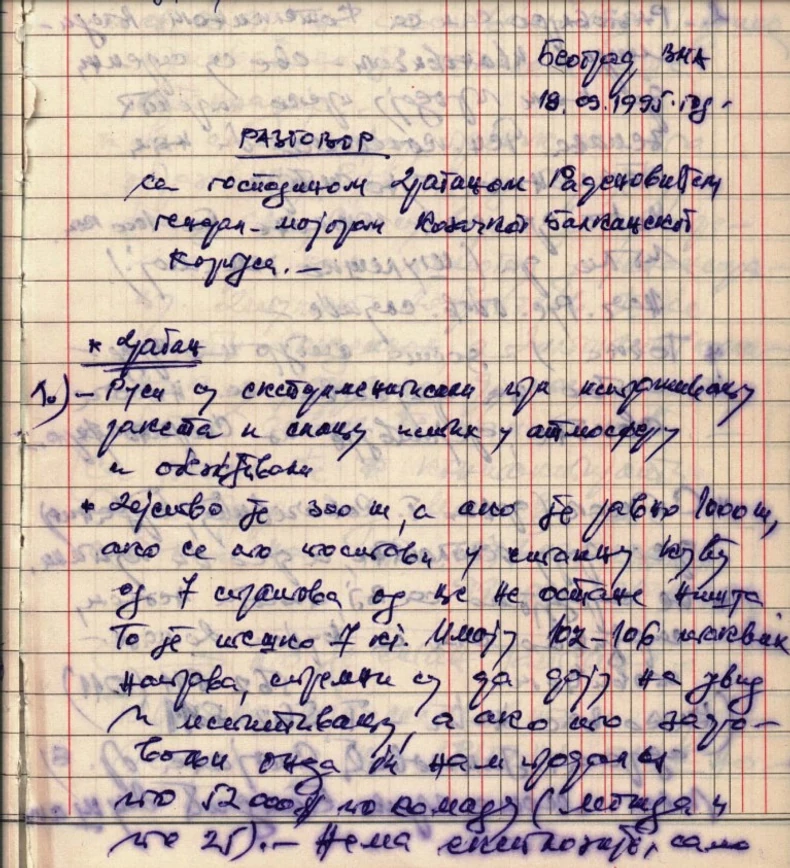 Београд ВМА
18.09.1995. год.
РАЗГОВОР
са господином Драганом Раденовићем
генерал-мајором Козачког Балканског
Корпуса.–
* Драган
1.) – Руси су експериментисали при испитивању
ракета и снагу истих у атмосфери
и
* Дејство је 300 m, а ако је равно 1000 m,
ако се то постави у стамбену кућу
од 7 спратова од ње не остане ништа
То је тешко 7 кг. Имају 102–106 таквих
направа, спремни су да дају на увид
и испитивању, а ако то задо-
вољи онда би нам продали
по 52 000 $ по комаду (можда и
по 25).– Нема експлозије, само